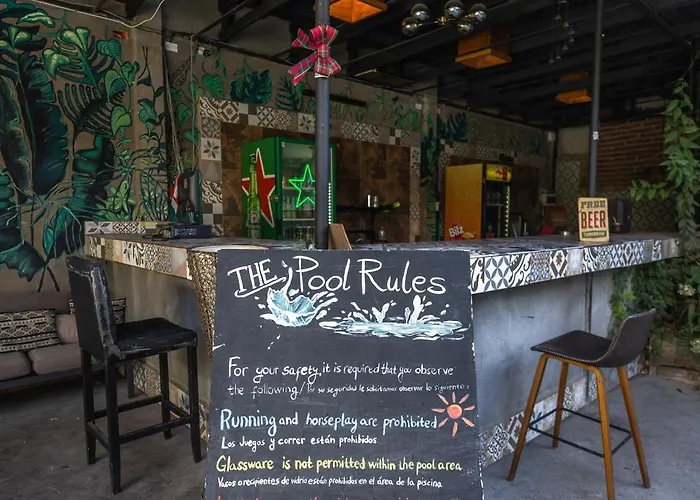 THE Pool Rules
For your safety, it is required that you observe
the following / Por su seguridad le solicitamos observar lo siguiente:
Running and horseplay are prohibited
Los Juegos y correr están prohibidos
Glassware is not permitted within the pool area
Vasos o recipientes de vidrio están prohibidos en el área de la piscina
FREE
BEER
Bitz